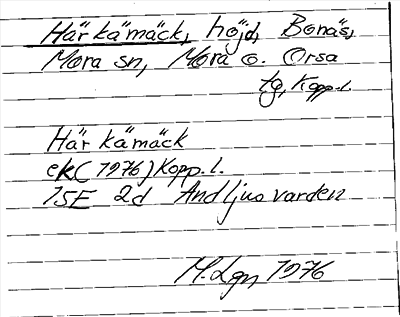 Härkämäck, höjd, Bonäs,
Mora sn, Mora o. Orsa
tg, Kopp.l.
Härkämäck
ek (1976) Kopp.l.
15E 2d Andljusvarden
M.Lgn 1976